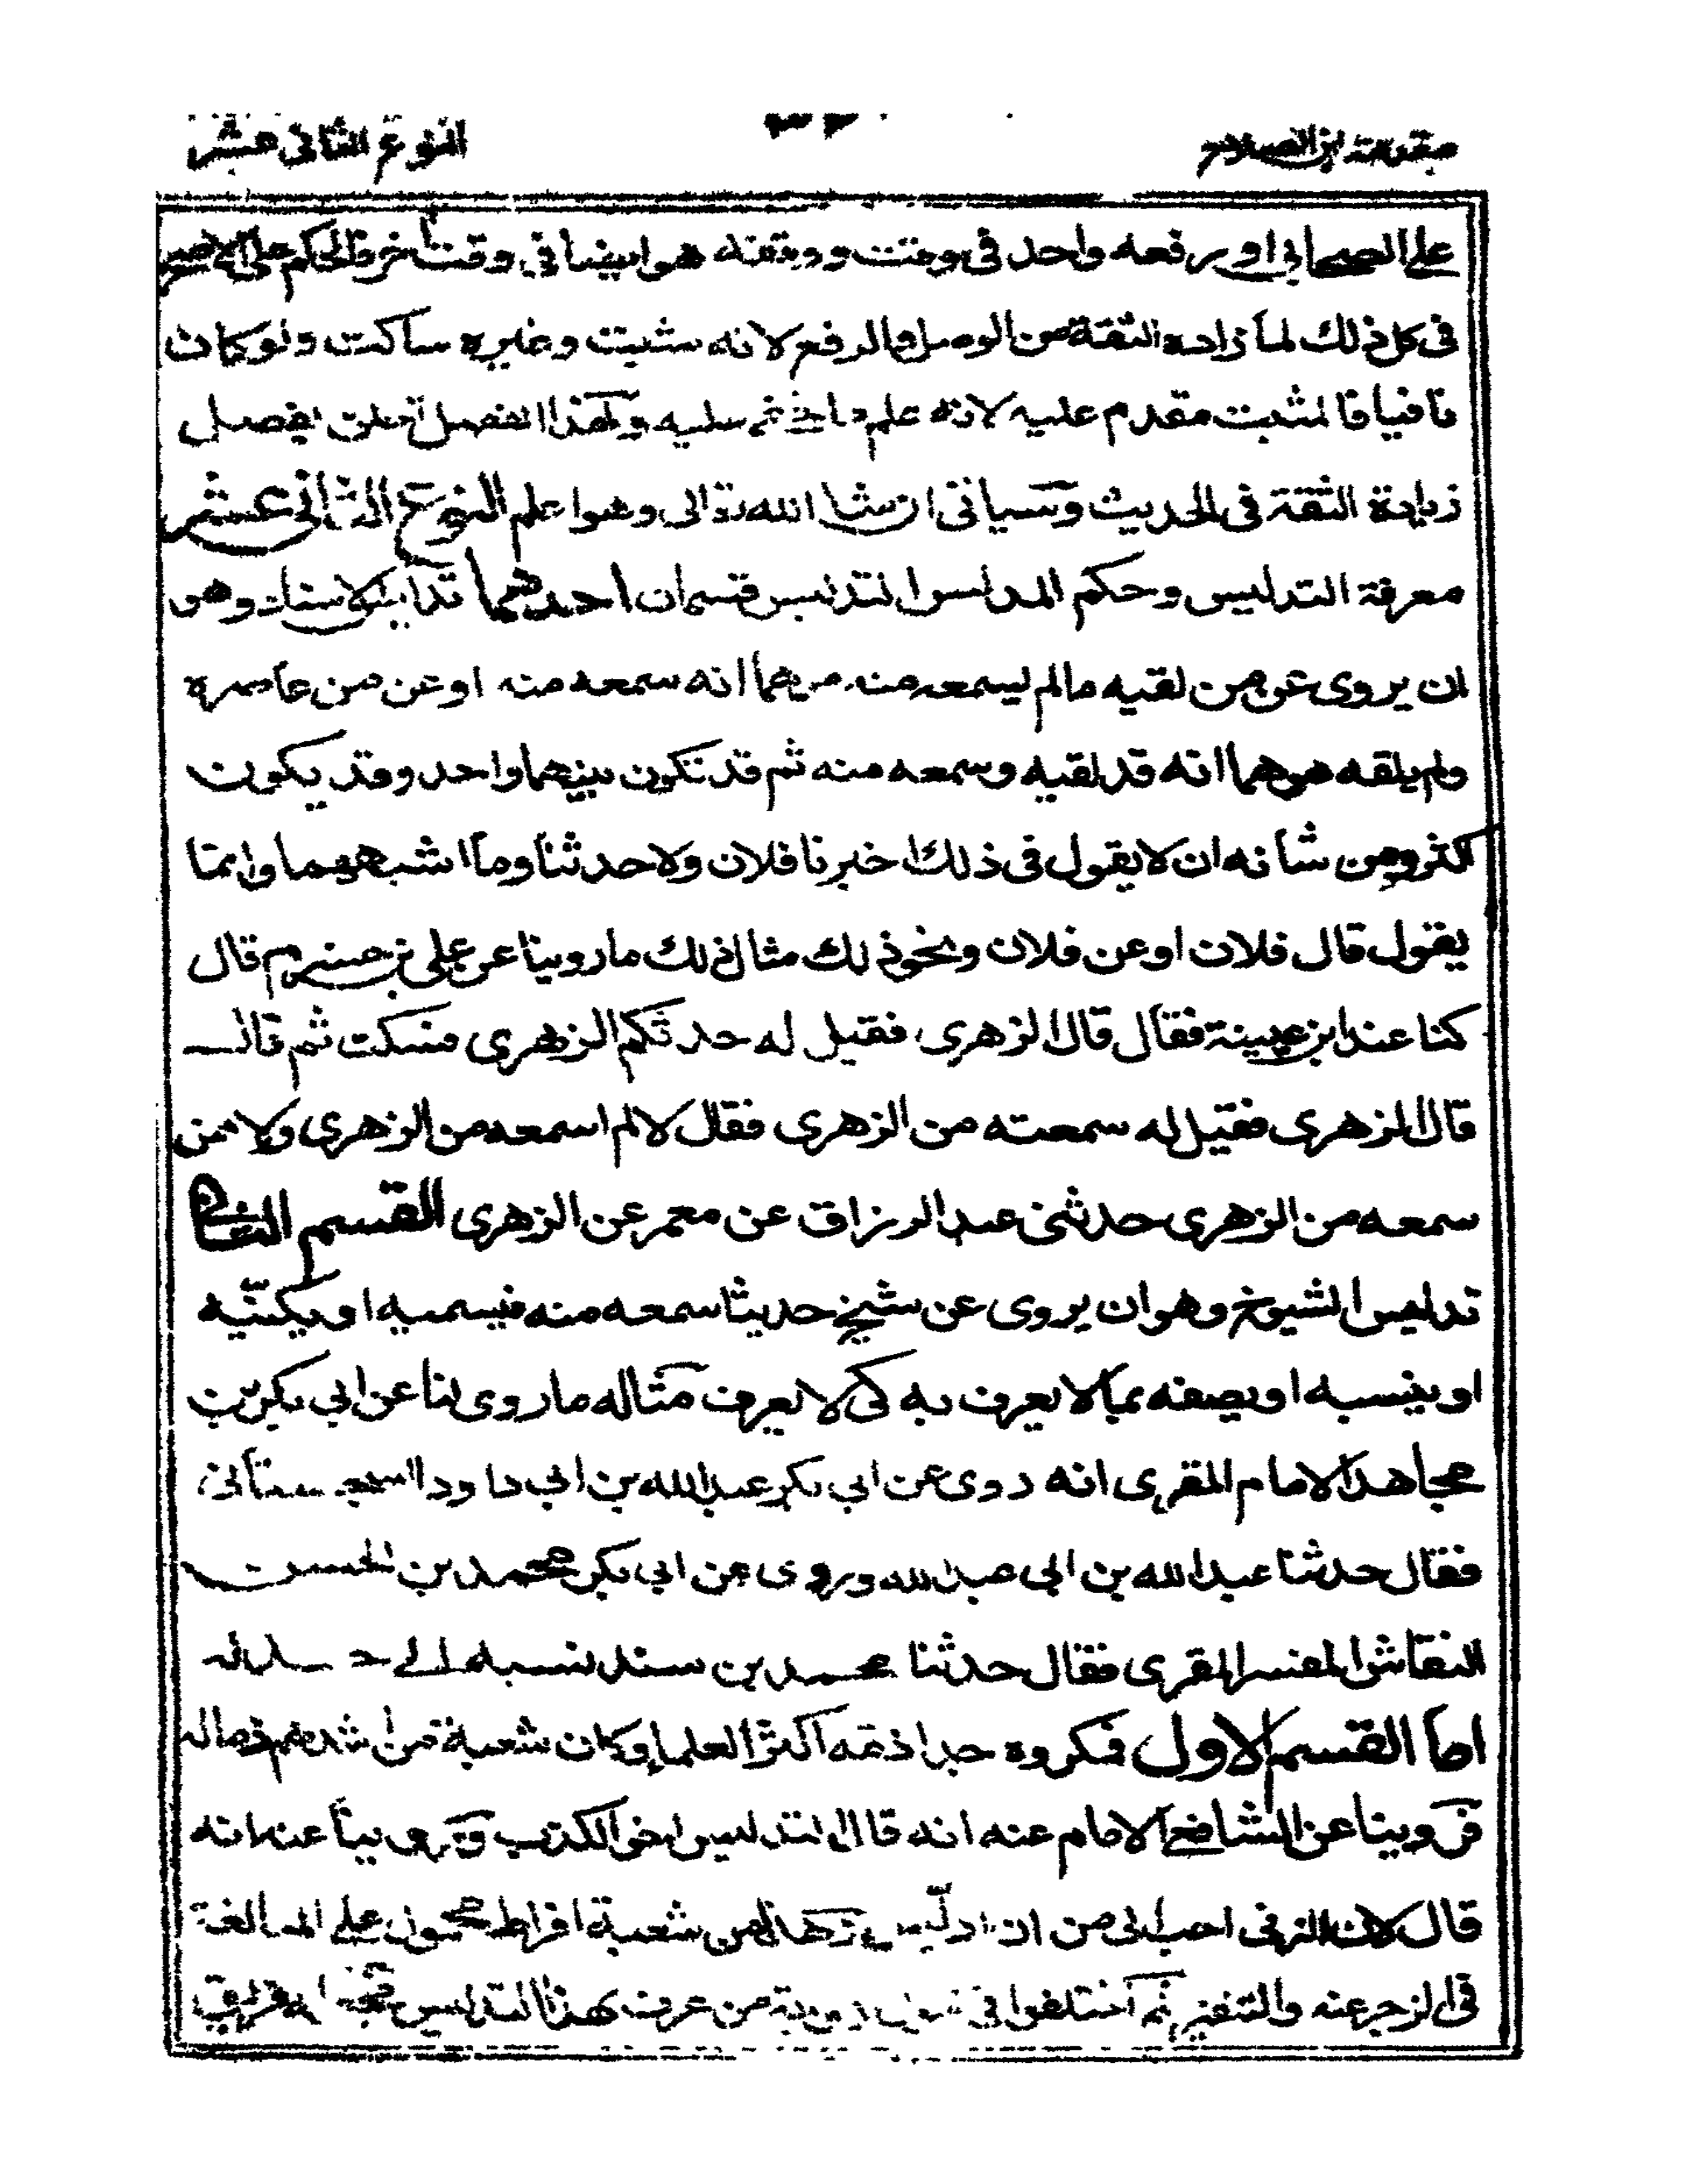 مقدمة ابن الصلاح ٣٢ النوع الثانى عشر
على الصحابي او رفعه واحد فى وقت ووقفه هو ايضا فى وقت اخر فالحكم على الاصح
فى كل ذلك لما زاده الثقة من الوصل والرفع لانه مثبت وغيره ساكت ولو كان
نافيا فالمثبت مقدم عليه لانه علم ما خفى عليه ولهذا الفصل تعلق بفصل
زيادة الثقة فى الحديث وسياتى ان شا الله تعالى وهوا علم النوع الثانى عشر
معرفة التدليس وحكم المدلس التدليس قسمان احدهما تدليس الاسناد وهو
ان يروى عن من لقيه مالم يسمعه منه موهما انه سمعه منه او عن من عاصره
ولم يلقه موهما انه قد لقيه وسمعه منه ثم قد تكون بينهما واحد وقد يكون
اكثر ومن شانه ان لا يقول فى ذلك اخبرنا فلان ولا حدثنا وما اشبههما وانما
يقول قال فلان او عن فلان ونحو ذلك مثال ذلك ما روينا عن على بن خشرم قال
كنا عند ابن عيينة فقال قال الزهرى فقيل له حدثكم الزهرى فسكت ثم قال
قال الزهرى فقيل له سمعته من الزهرى فقال لا لم اسمعه من الزهرى ولا ممن
سمعه من الزهرى حدثنى عبد الرزاق عن معمر عن الزهرى القسم الثانى
تدليس الشيوخ وهو ان يروى عن شيخ حديثا سمعه منه فيسميه او يكنيه
او ينسبه او يصفه بما لا يعرف به كى لا يعرف مثاله ما روى لنا عن ابي بكر بن
مجاهد الامام المقرى انه روى عن ابي بكر عبد الله بن ابي داود السجستانى
فقال حدثنا عبد الله بن ابي عبد الله وروى عن ابي بكر محمد بن الحسن
النقاش المفسر المقرى فقال حدثنا محمد بن سند نسبه الى جد له
اما القسم الاول فمكروه جدا ذمه اكثر العلما وكان شعبة من اشدهم ذما له
فروينا عن الشافعى الامام عنه انه قال التدليس اخو الكذب وروينا عنه انه
قال لان ازنى احب الى من ان ادلس وهذا من شعبة افراط محمول على المبالغة
فى الزجر عنه والتنفير ثم اختلفوا فى قبول رواية من عرف بهذا التدليس فجعله فريق